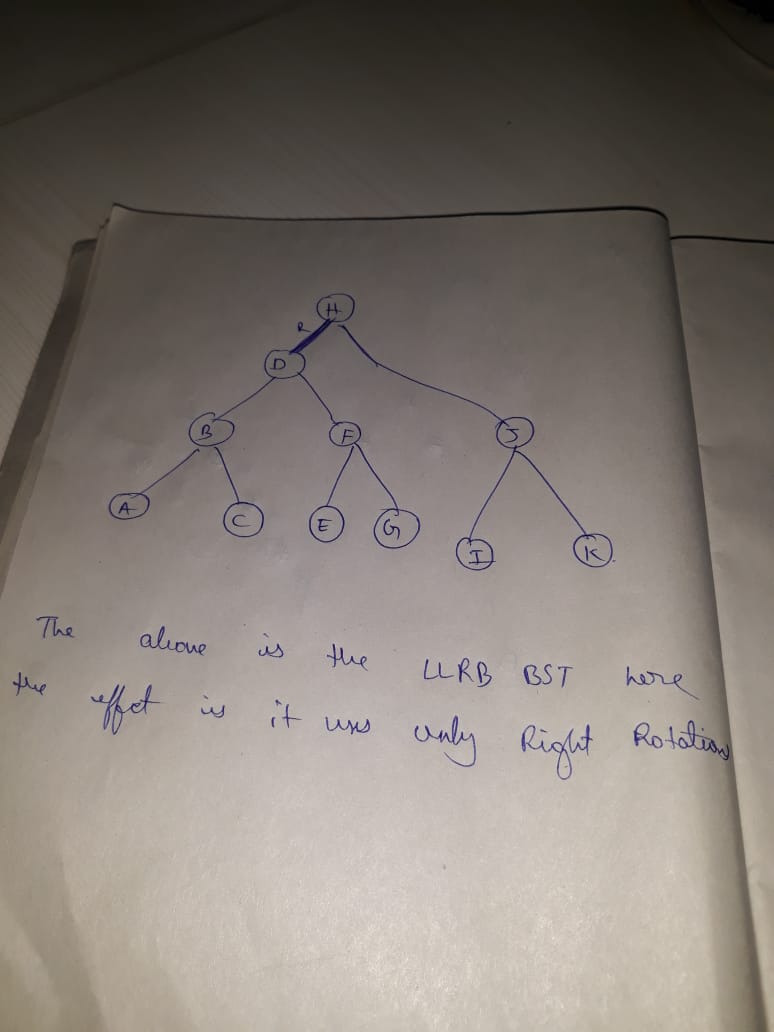 H
R
D
B F J
A C E G I K
The above is the LLRB BST here
the effet is it uses only Right Rotation